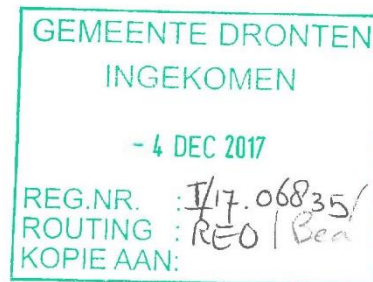 GEMEENTE DRONTEN
INGEKOMEN
- 4 DEC 2017
REG.NR. : I/17.06835/
ROUTING : REO | Bea
KOPIE AAN: